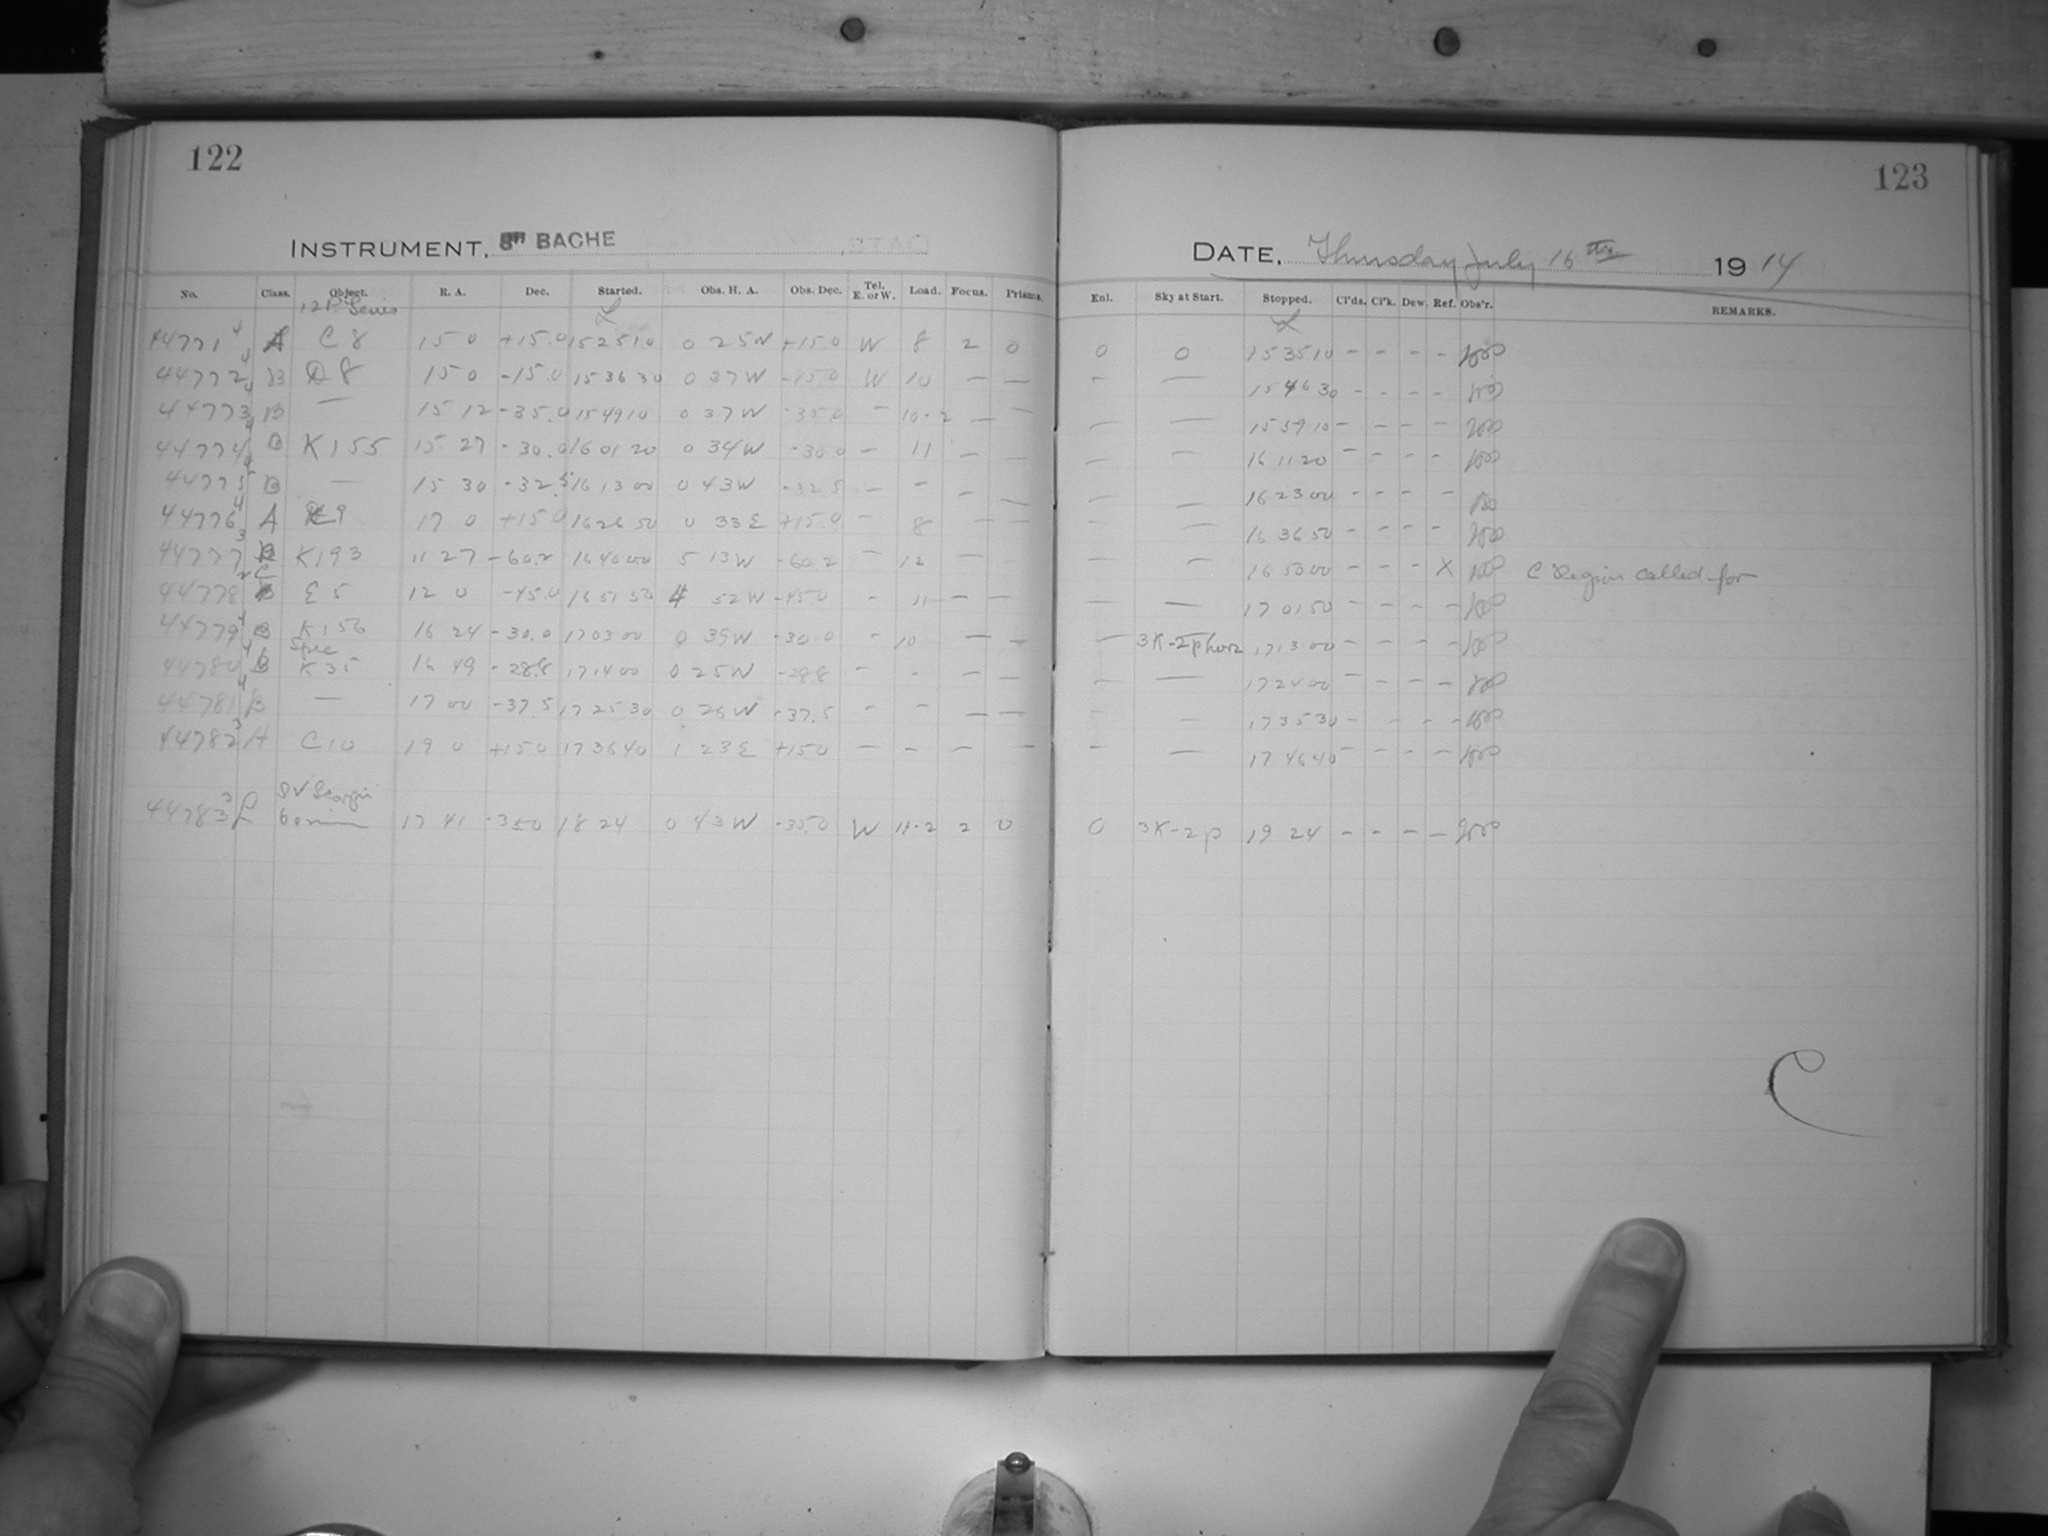 122
INSTRUMENT, 8" BACHE
No. Class. Object. R. A. Dec. Started. Obs. H. A. Obs. Dec. Tel. E. or W. Load. Focus. Prisms.
12 P. Series
44771 4 A C 8 15 0 +15.0 15 25 10 0 25 W +15.0 W 8 2 0
44772 4 B D 8 15 0 -15.0 15 36 30 0 37 W -15.0 W 10 — —
44773 4 B — 15 12 -35.0 15 49 10 0 37 W -35.0 — 10-2 — —
44774 B K 155 15 27 -30.0 16 01 20 0 34 W -30.0 — 11 — —
44775 5 B — 15 30 -32.5 16 13 00 0 43 W -32.5 — — — —
44776 4 A 9 17 0 +15.0 16 26 50 0 33 E +15.0 — 8 — —
44777 3 B K 193 11 27 -60.2 16 40 00 5 13 W -60.2 — 12 — —
44778 2 C E 5 12 0 -45.0 16 51 50 4 52 W -45.0 - 11 — —
44779 4 B K 156 16 24 -30.0 17 03 00 0 39 W -30.0 - 10 — —
Spec
44780 4 B K 35 16 49 -28.8 17 14 00 0 25 W -28.8 — - — —
44781 4 B — 17 00 -37.5 17 25 30 0 26 W -37.5 - - — —
44782 3 A C 10 19 0 +15.0 17 36 40 1 23 E +15.0 — — — —
SV Scorpii
44783 3 L 6 min 17 41 -35.0 18 24 0 43 W -35.0 W 11-2 2 0
123
DATE, Thursday July 16th 1914
Enl. Sky at Start. Stopped. Cl'ds. Cl'k. Dew. Ref. Obs'r. REMARKS.
0 0 15 35 10 - - - -
- — 15 46 30 - - - -
— — 15 59 10 - - - -
— — 16 11 20 - - - -
— — 16 23 00 - - - -
— — 16 36 50 - - - -
— — 16 50 00 - - - X C Region called for
— — 17 01 50 - - - -
— 3K-2p 17 13 00 - - - -
— — 17 24 00 - - - -
— — 17 35 30 - - - -
— — 17 46 40 - - - -
0 3K-2p 19 24 - - - -
C